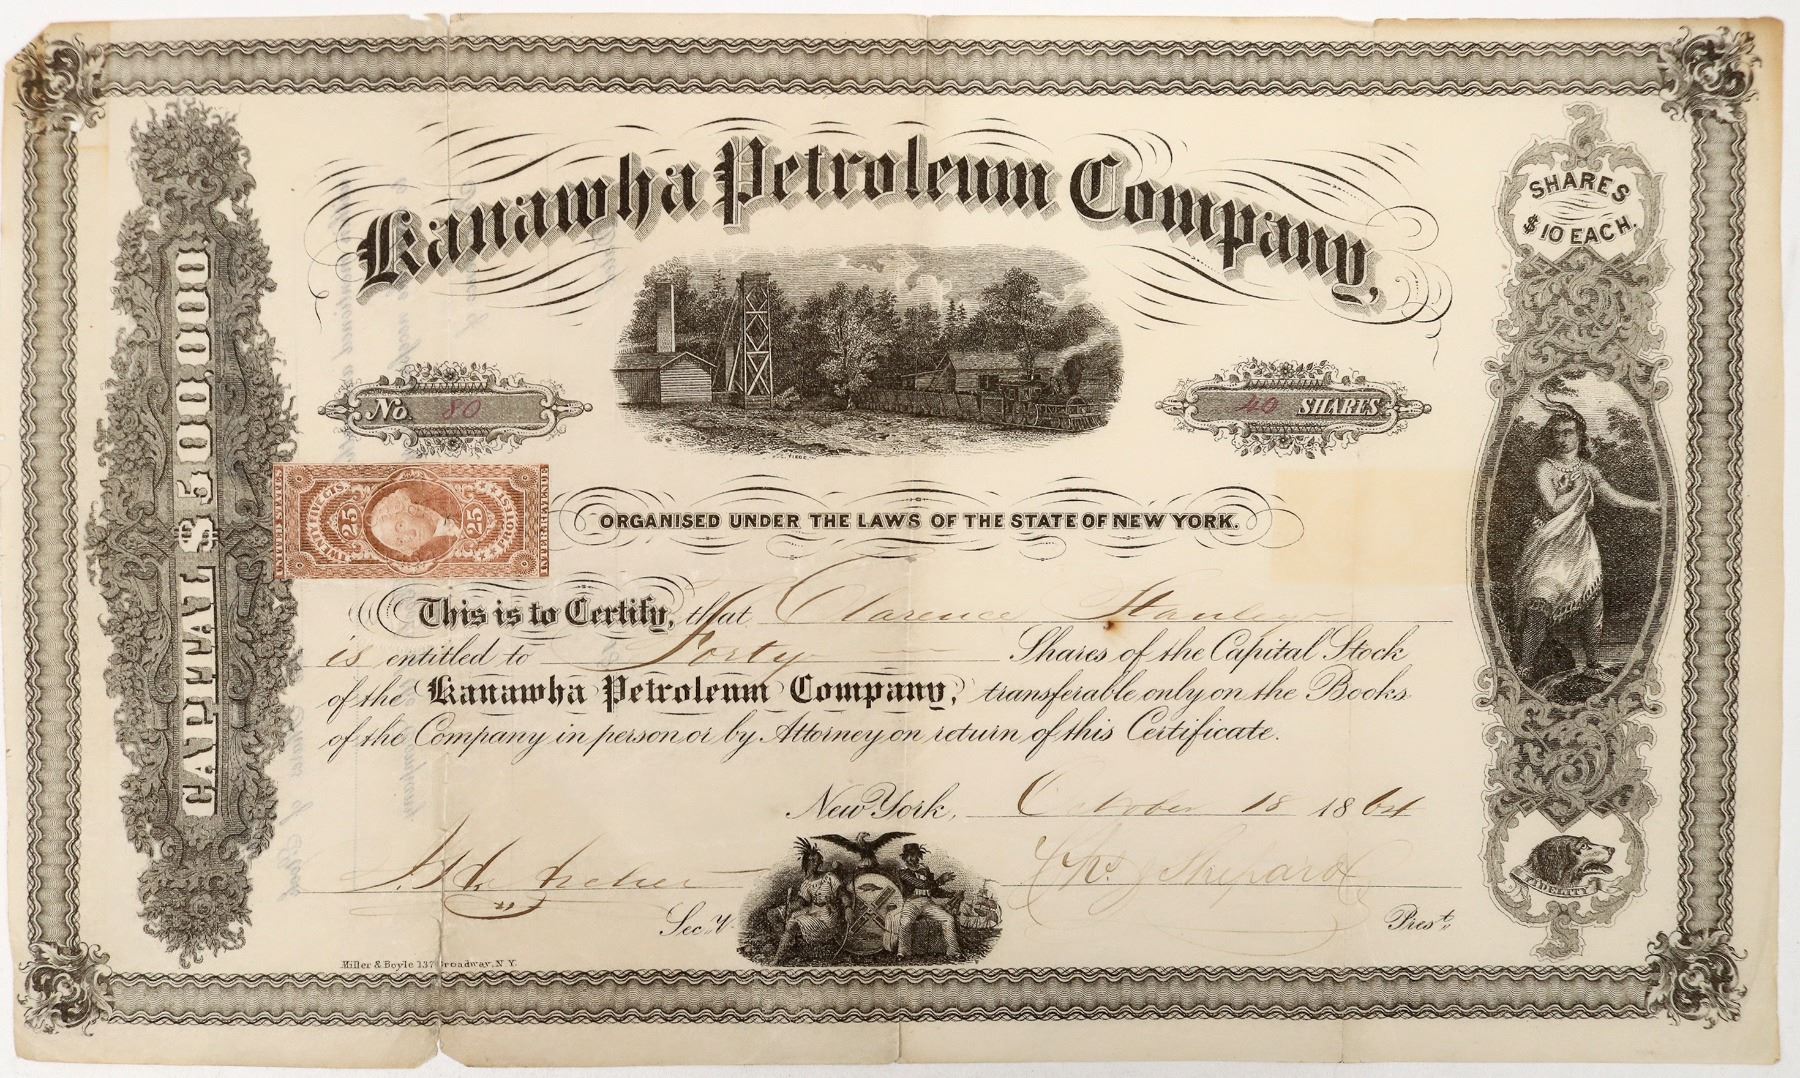 Kanawha Petroleum Company,
SHARES
$10 EACH.
CAPITAL $500,000
No. 80
40 SHARES
UNITED STATES
INTER. REVENUE
TWENTY FIVE CTS.
25 25
ORGANISED UNDER THE LAWS OF THE STATE OF NEW YORK.
This is to Certify, that Clarence Stanley
is entitled to Forty Shares of the Capital Stock
of the Kanawha Petroleum Company, transferable only on the Books
of the Company in person or by Attorney on return of this Certificate.
New York, October 18 1864
Sec'y.
Chs J Shepard
Pres't.
FIDELITY
Miller & Boyle 137 Broadway, N.Y.